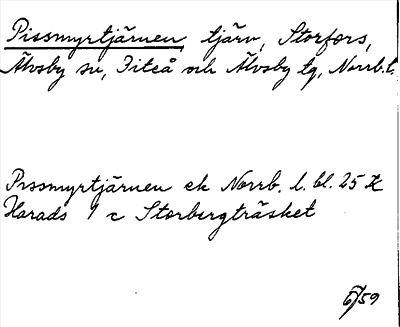 Pissmyrtjärnen, tjärn, Storfors,
Älvsby sn, Piteå och Älvsby tg, Norrb.l.
Pissmyrtjärnen ek Norrb. l. bl. 25 K
Harads 9 c Storbergträsket
6/59